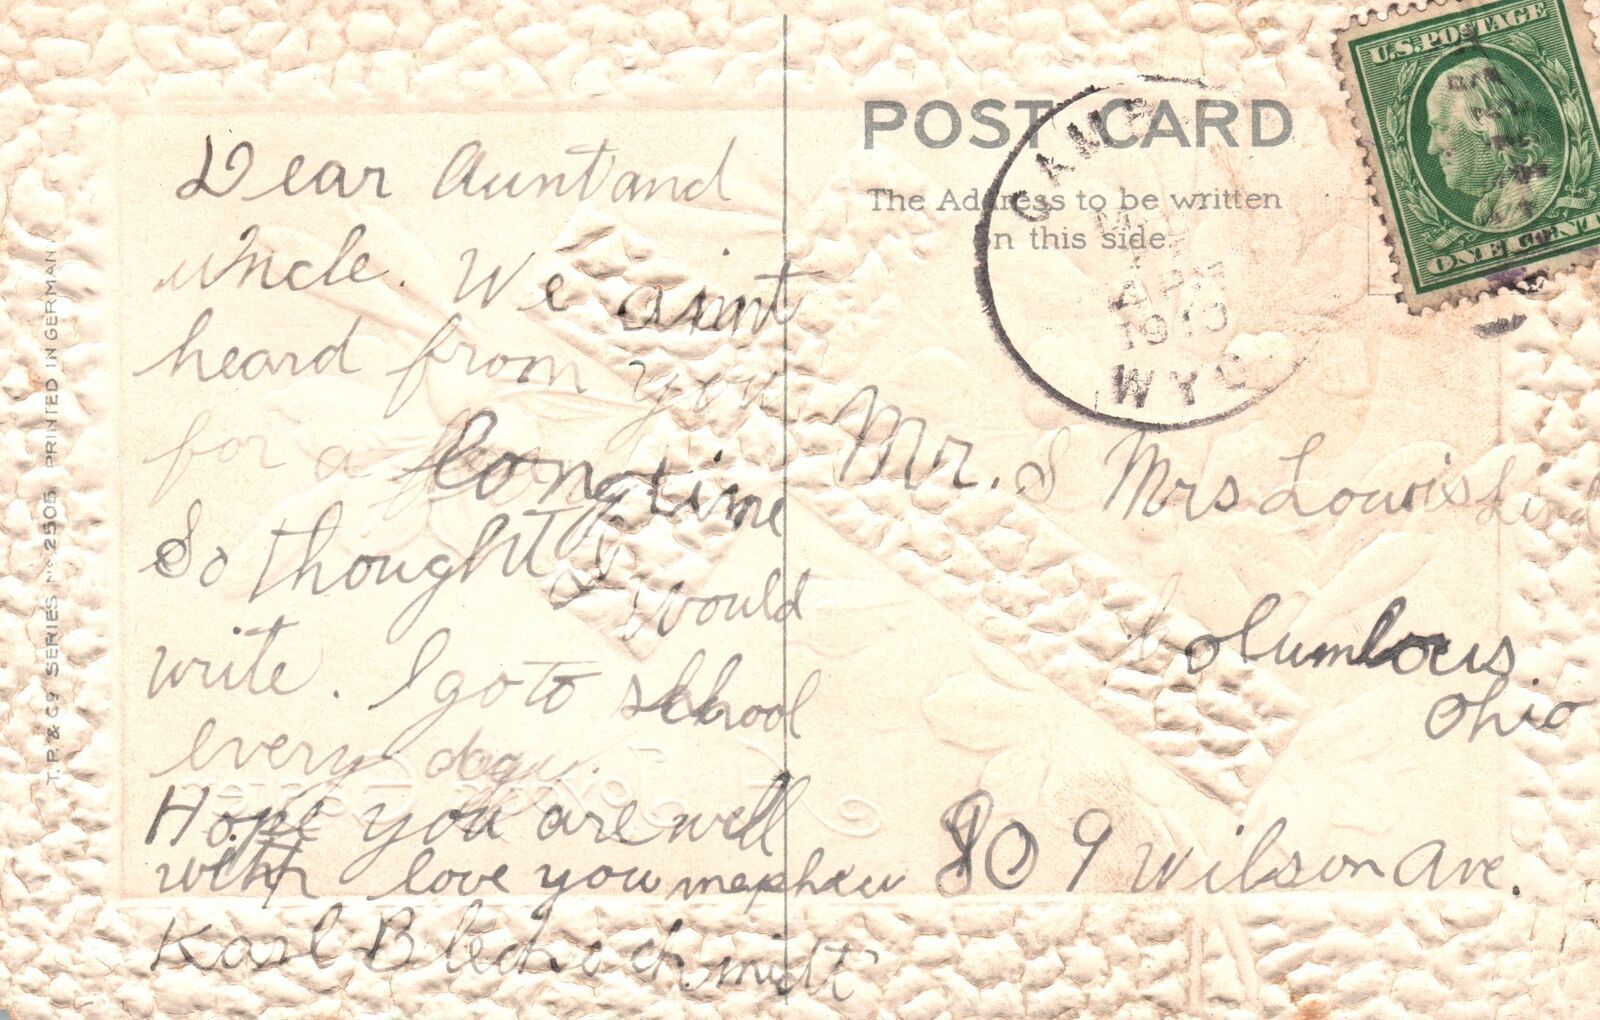 Dear Aunt and
uncle. We aint
heard from you
for a long time
So thought I would
write. I go to school
every day.
Hope you are well
with love you nephew
Karl
POST CARD
The Address to be written
on this side.
U.S. POSTAGE
ONE CENT
CAMP
APR
WYO
Mr. & Mrs Louis
Columbous
Ohio
809 Wilson Ave.
T.P. & Co SERIES No 2505 PRINTED IN GERMANY